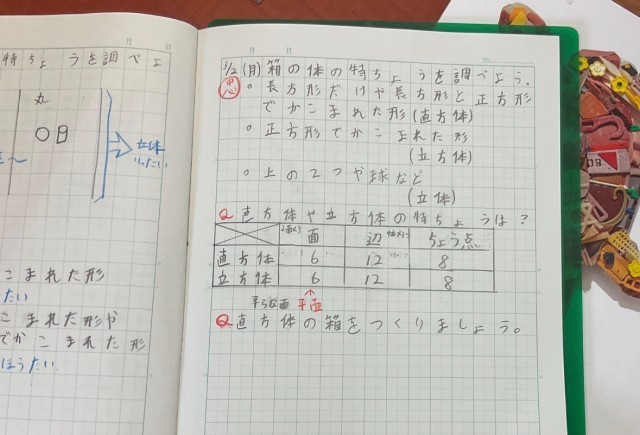 月 日
特ちょうを調べよ
丸
立体
りったい
こまれた形
たい
こまれた形や
でかこまれた形
ほうたい
月 日
3/2(月)箱の体の特ちょうを調べよう。
思 ○長方形だけや長方形と正方形
でかこまれた形(直方体)
○正方形でかこまれた形
(立方体)
○上の2つや球など
(立体)
Q直方体や立方体の特ちょうは?
面 辺 ちょう点
直方体 6 12 8
立方体 6 12 8
平らな面 平面
Q直方体の箱をつくりましょう。